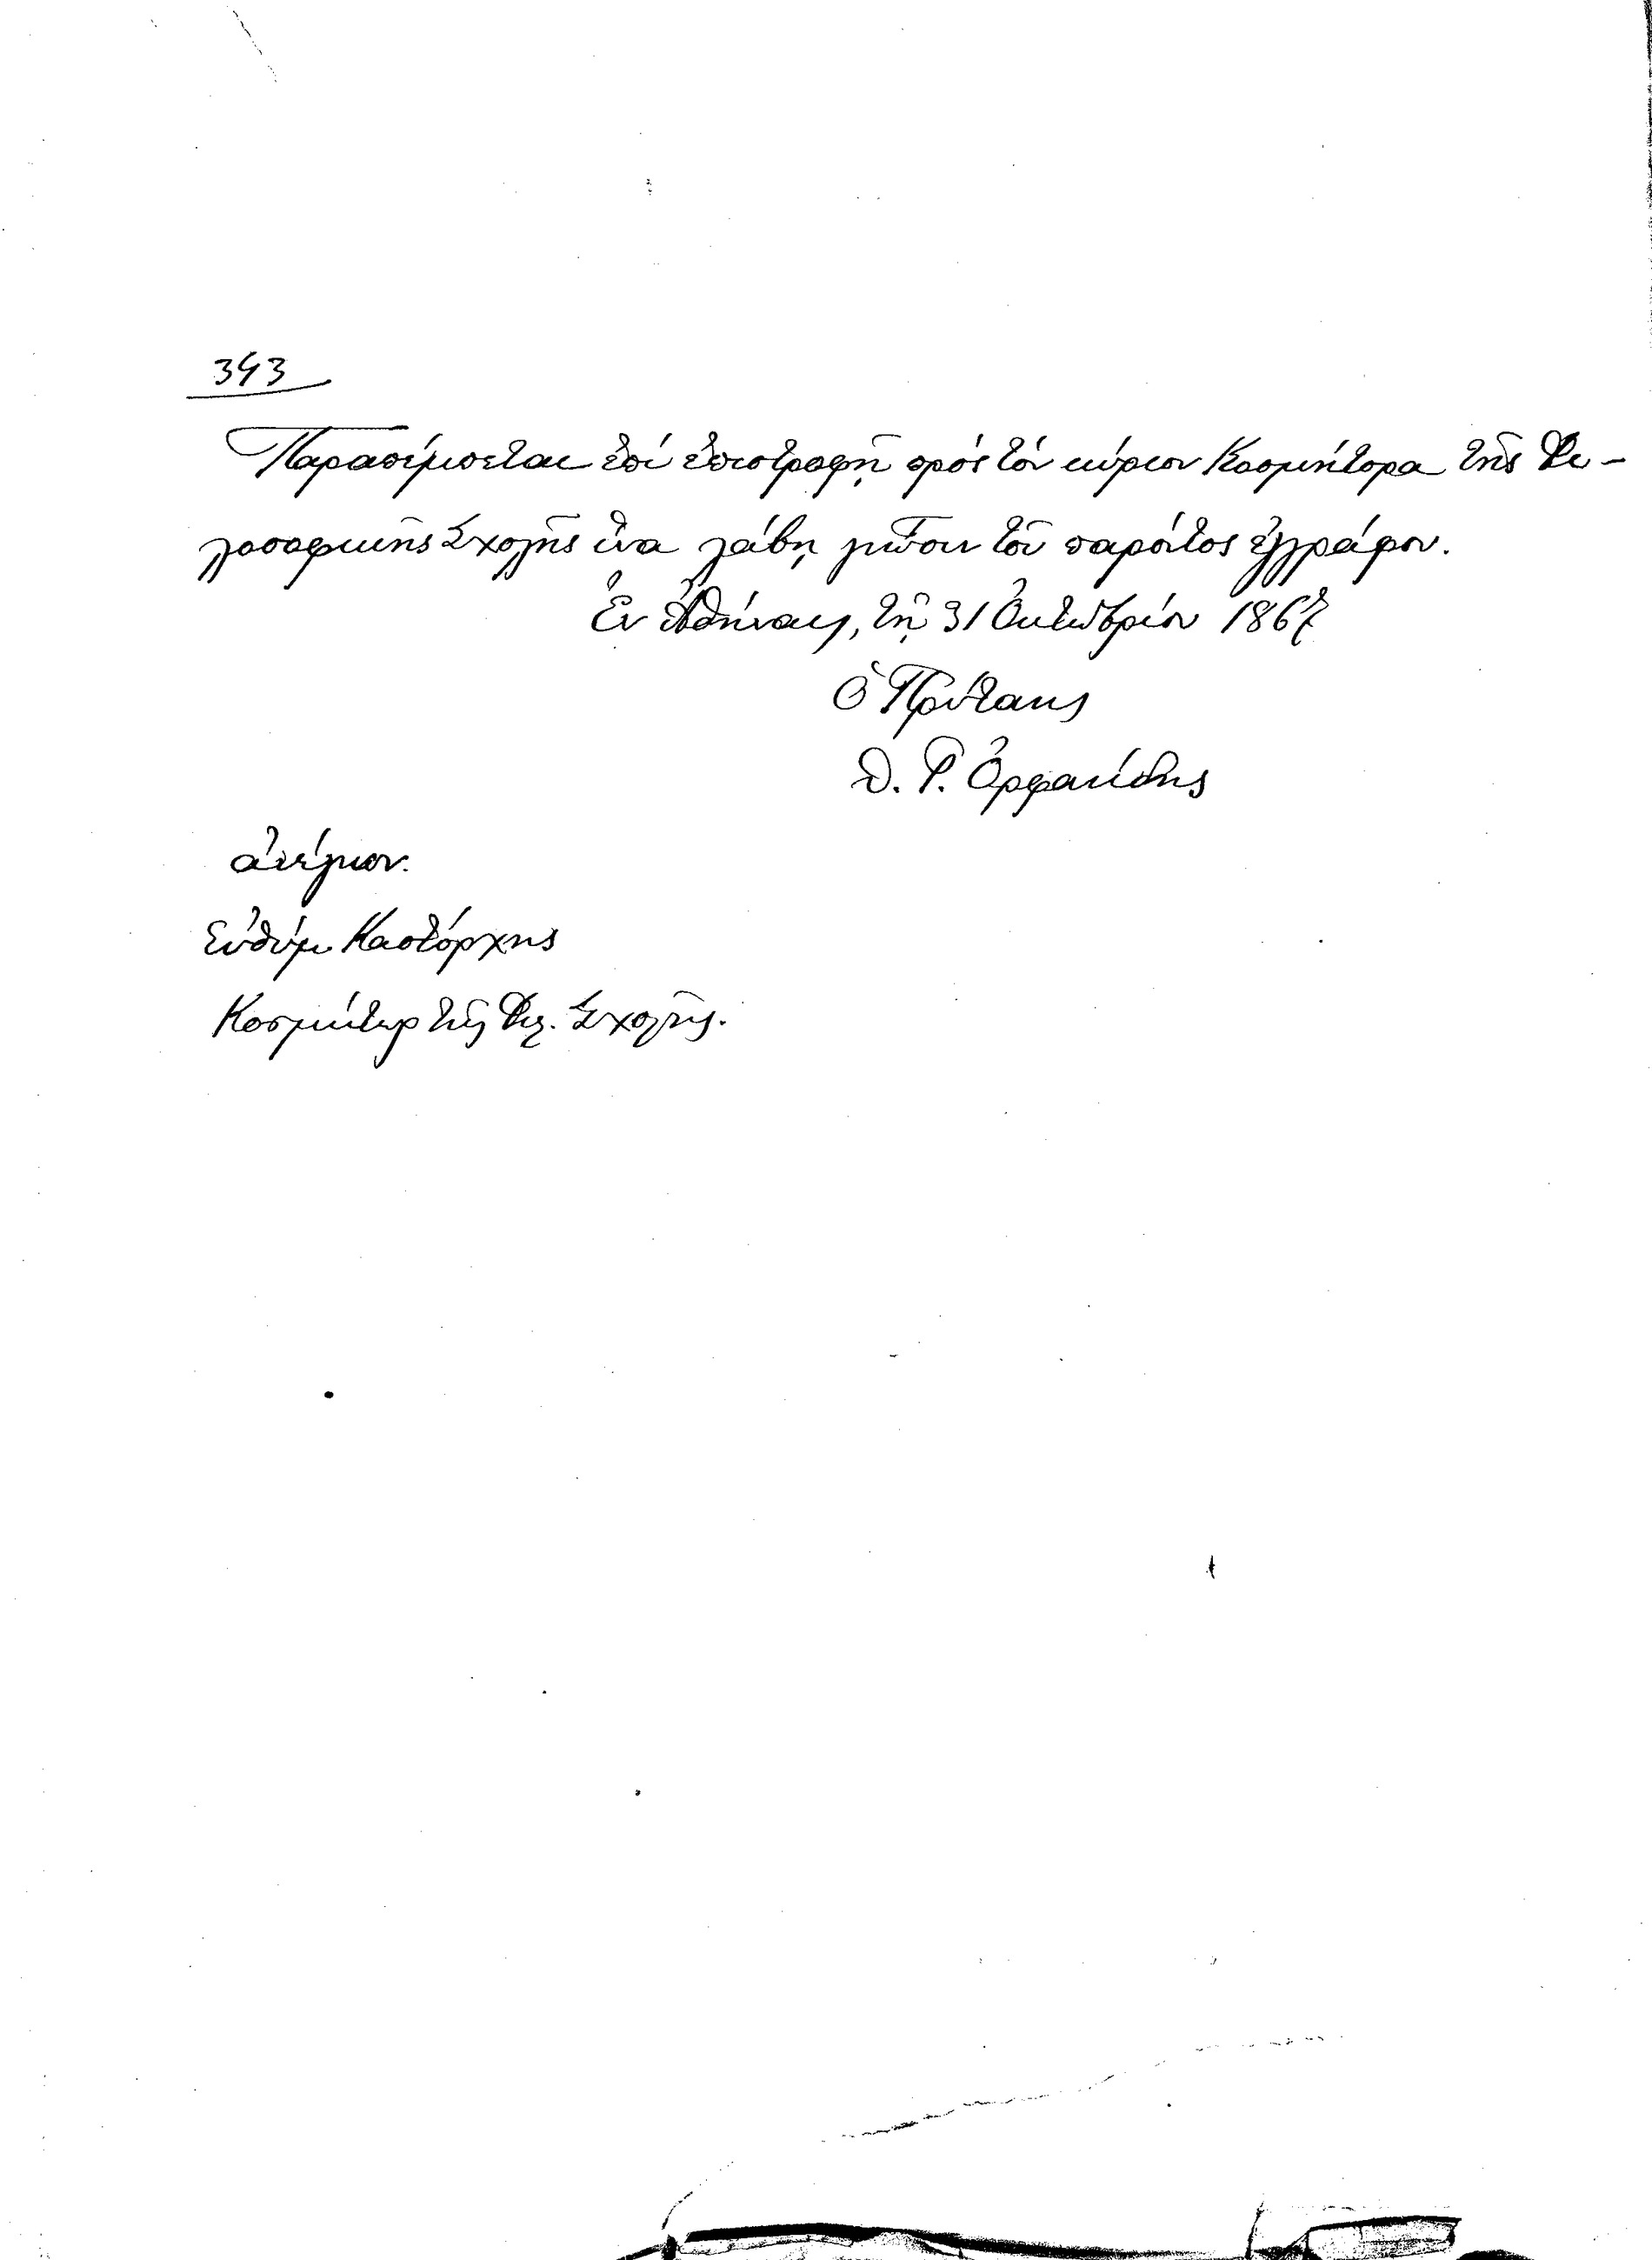 343
Παραπέμπεται ἐπὶ ἐπιστροφῇ πρὸς τὸν κύριον Κοσμήτορα τῆς Φι-
λοσοφικῆς Σχολῆς ἵνα λάβῃ γνῶσιν τοῦ παρόντος ἐγγράφου.
Ἐν Ἀθήναις, τῇ 31 Ὀκτωβρίου 1867
Ὁ Πρύτανις
Θ. Γ. Ὀρφανίδης
ἀνέγνων.
Εὐθύμ Καστόρχης
Κοσμήτωρ τῆς Φιλ. Σχολῆς.